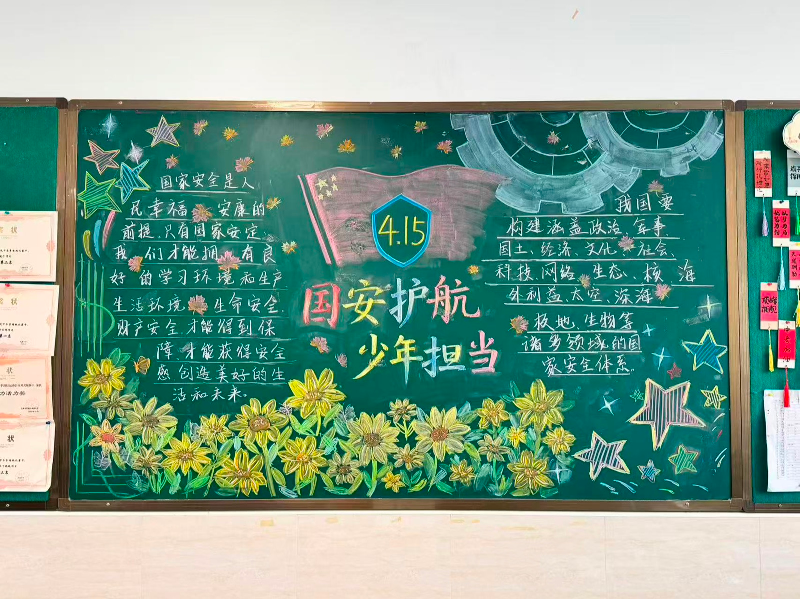 国家安全是人
民幸福、安康的
前提,只有国家安定,
我们才能拥有良
好的学习环境和生产
生活环境,生命安全、
财产安全才能得到保
障,才能获得安全
感,创造美好的生
活和未来。
4.15
国安护航
少年担当
我国要
构建涵盖政治、军事、
国土、经济、文化、社会、
科技、网络、生态、核、海
外利益、太空、深海、
极地、生物等
诸多领域的国
家安全体系。